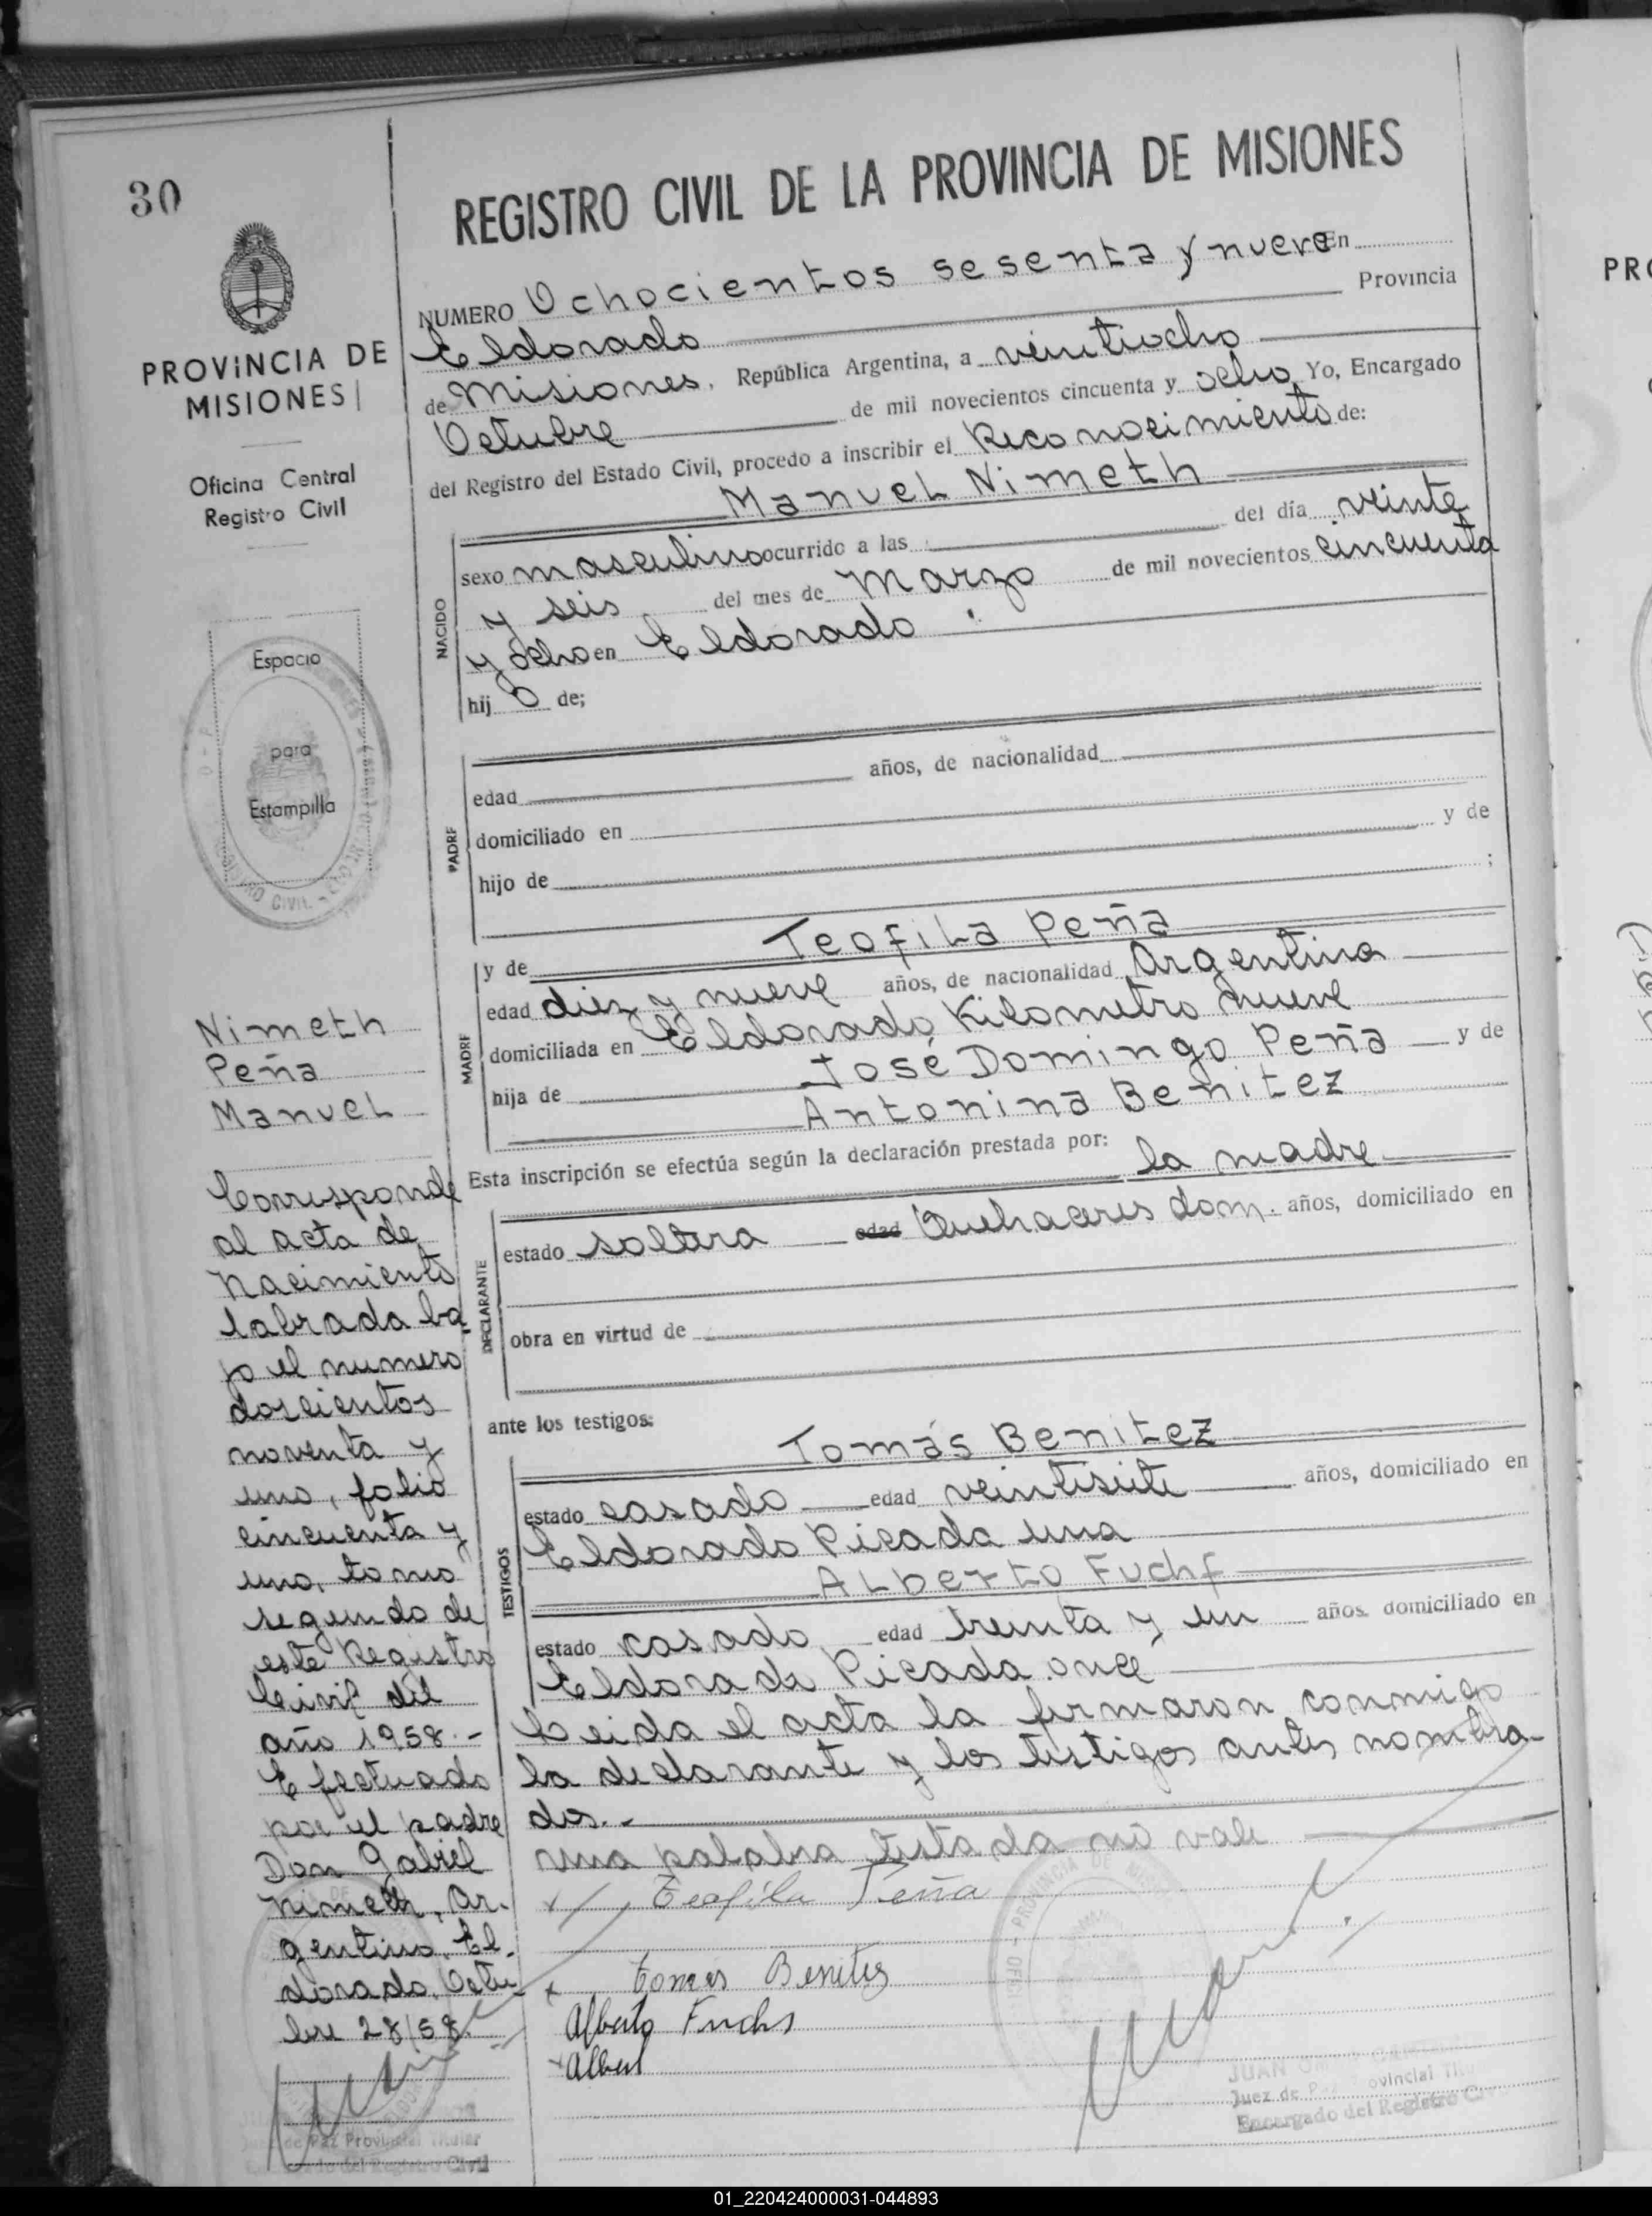 30
PROVINCIA DE
MISIONES
Oficina Central
Registro Civil
Espacio
para
Estampilla
Nimeth
Peña
Manuel
Corresponde
al acta de
Nacimiento
labrada ba
jo el numero
doscientos
noventa y
uno, folio
cincuenta y
uno, tomo
segundo de
este Registro
Civil del
año 1958.-
Efectuado
por el padre
Don Gabriel
Nimeth, Ar-
gentino. El-
dorado, Octu-
bre 28/58.
de Paz Provincial Titular
del Registro Civil
REGISTRO CIVIL DE LA PROVINCIA DE MISIONES
NUMERO Ochocientos sesenta y nueve En
Eldorado Provincia
de Misiones, República Argentina, a veintiocho
Octubre de mil novecientos cincuenta y ocho Yo, Encargado
del Registro del Estado Civil, procedo a inscribir el Reconocimiento de:
Manuel Nimeth
NACIDO
sexo masculino ocurrido a las del día veinte
y seis del mes de Marzo de mil novecientos cincuenta
y ocho en Eldorado
hijo de;
PADRE
edad años, de nacionalidad
domiciliado en
hijo de y de
;
MADRE
y de Teofila Peña
edad diez y nueve años, de nacionalidad Argentina
domiciliada en Eldorado Kilometro nueve
hija de José Domingo Peña y de
Antonina Benitez
Esta inscripción se efectúa según la declaración prestada por:
la madre
DECLARANTE
estado soltera edad Quehaceres dom. años, domiciliado en
obra en virtud de
ante los testigos:
Tomás Benitez
TESTIGOS
estado casado edad veintisiete años, domiciliado en
Eldorado Picada una
Alberto Fuchs
estado casado edad treinta y un años. domiciliado en
Eldorado Picada once
Leida el acta la firmaron conmigo
la declarante y los testigos antes nombra-
dos.-
una palabra testada no vale
Teofila Peña
Tomas Benites
Alberto Fuchs
Albert
JUAN
Juez de Paz Provincial
Encargado del Registro
PRO
01_220424000031-044893